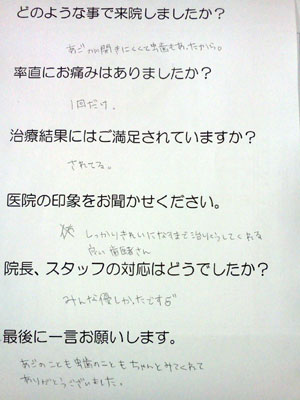 どのような事で来院しましたか？
あごが開きにくくて虫歯もあったから。
率直にお痛みはありましたか？
1回だけ。
治療結果にはご満足されていますか？
されてる。
医院の印象をお聞かせください。
しっかりきれいになるまで治りょうしてくれる
良い歯医者さん
院長、スタッフの対応はどうでしたか？
みんな優しかったです
最後に一言お願いします。
あごのことも虫歯のこともちゃんとみてくれて
ありがとうございました。